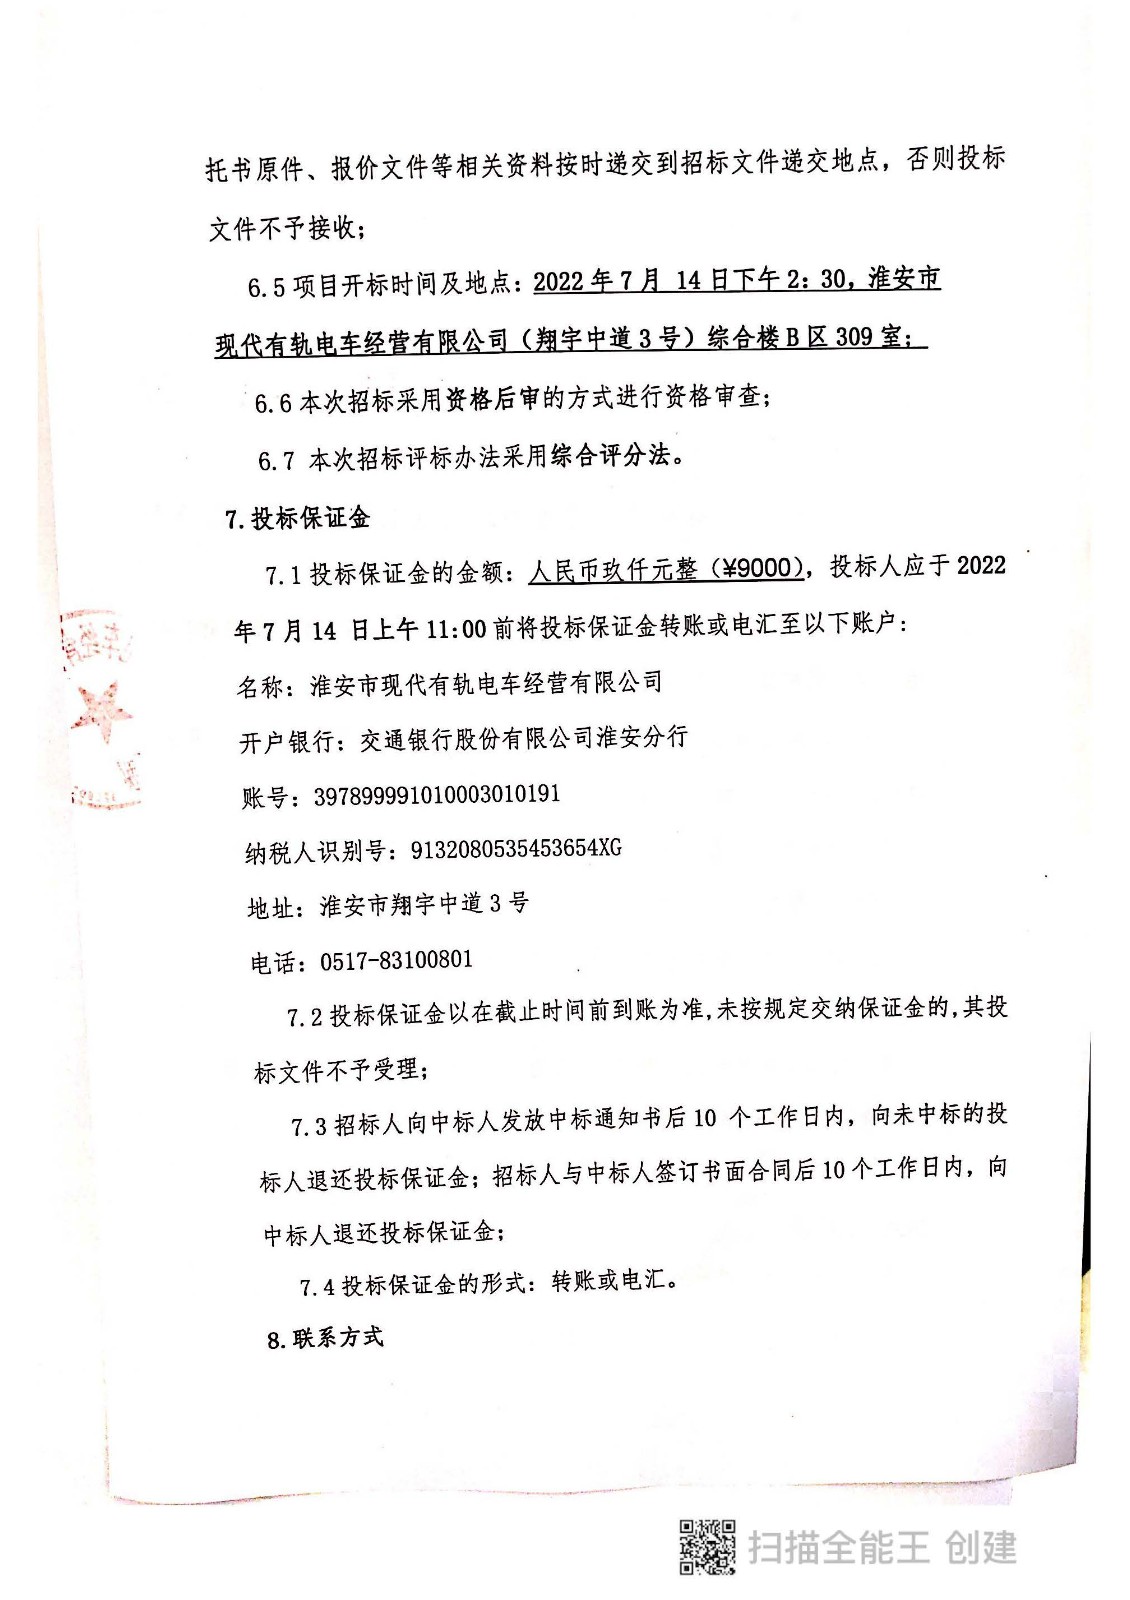 托书原件、报价文件等相关资料按时递交到招标文件递交地点，否则投标
文件不予接收；
6.5 项目开标时间及地点：2022 年 7 月 14 日下午 2：30，淮安市
现代有轨电车经营有限公司（翔宇中道 3 号）综合楼 B 区 309 室；
6.6 本次招标采用资格后审的方式进行资格审查；
6.7 本次招标评标办法采用综合评分法。
7.投标保证金
7.1 投标保证金的金额：人民币玖仟元整（¥9000），投标人应于 2022
年 7 月 14 日上午 11:00 前将投标保证金转账或电汇至以下账户：
名称：淮安市现代有轨电车经营有限公司
开户银行：交通银行股份有限公司淮安分行
账号：397899991010003010191
纳税人识别号：9132080535453654XG
地址：淮安市翔宇中道 3 号
电话：0517-83100801
7.2 投标保证金以在截止时间前到账为准,未按规定交纳保证金的,其投
标文件不予受理；
7.3 招标人向中标人发放中标通知书后 10 个工作日内，向未中标的投
标人退还投标保证金；招标人与中标人签订书面合同后 10 个工作日内，向
中标人退还投标保证金；
7.4 投标保证金的形式：转账或电汇。
8.联系方式
扫描全能王 创建